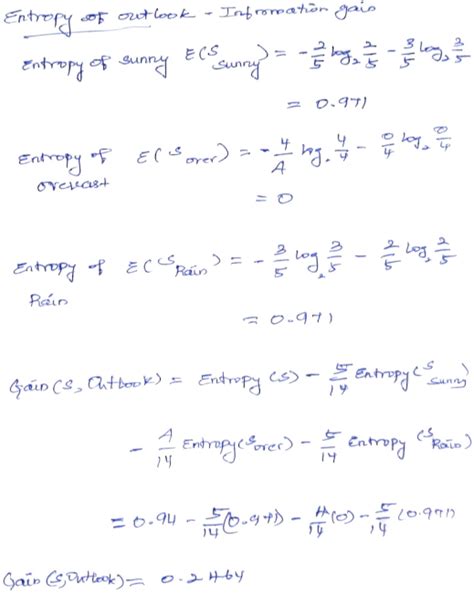 Entropy of outlook - Information gain
Entropy of sunny E(S sunny) = -2/5 log₂ 2/5 - 3/5 log₂ 3/5
= 0.971
Entropy of overcast E(S over) = -4/4 log₂ 4/4 - 0/4 log₂ 0/4
= 0
Entropy of Rain E(S Rain) = -3/5 log₂ 3/5 - 2/5 log₂ 2/5
= 0.971
Gain(S, Outlook) = Entropy(S) - 5/14 Entropy(S sunny)
- 4/14 Entropy(S over) - 5/14 Entropy(S Rain)
= 0.94 - 5/14(0.971) - 4/14(0) - 5/14(0.971)
Gain(S, Outlook) = 0.2464